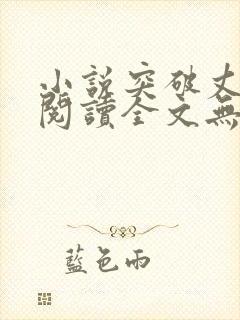 小說突破丈
閱讀全文無
藍色雨